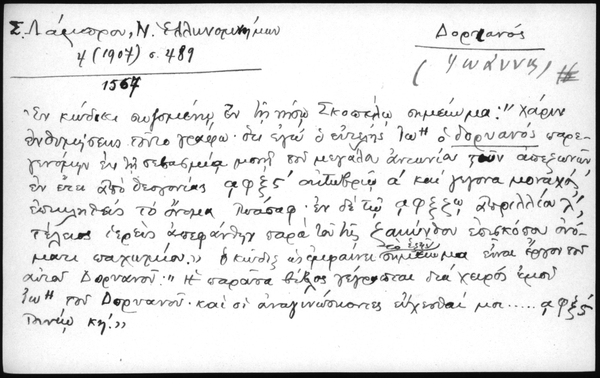 Σ. Λάμπρου, Ν. Ἑλληνομνήμων
4 (1907) σ. 489
Δορυανός
(Ἰωάννης)
1567
Ἐν κώδικι σωζομένῳ ἐν τῇ νήσῳ Σκοπέλῳ σημείωμα: "Χάριν
ἐνθυμήσεως τοῦτο γράφω· ὅτι ἐγὼ ὁ εὐτελής Ἰωⁿ ὁ δορυανός παρε-
γενόμην ἐν τῇ σεβασμίᾳ μονῇ τοῦ μεγάλου ἀντωνίου τῶν ἀπεζωνῶν
ἐν ἔτει ἀπὸ θεογονίας αφξς΄ ὀκτωβρίῳ α΄ καὶ γέγονα μοναχός,
ἐπικληθείς τὸ ὄνομα Ἰωάσαφ· ἐν δὲ τῷ αφξζῳ ἀπριλλίου λ΄,
τέλειος ἱερεὺς ἀπεφάνθην παρὰ τοῦ τῆς ζακύνθου ἐπισκόπου ὀνό-
ματι παχωμίου.» ὁ κῶδιξ ὡς ἐμφαίνει τὸ ἑξῆς σημείωμα εἶναι ἔργον τοῦ
αὐτοῦ Δορυανοῦ: "Ἡ παροῦσα βίβλος γέγραπται διὰ χειρός ἐμοῦ
Ἰωⁿ τοῦ Δορυανοῦ· καὶ οἱ ἀναγινώσκοντες εὔχεσθαί μοι..... αφξς΄
Ἰουνίῳ κη΄.»